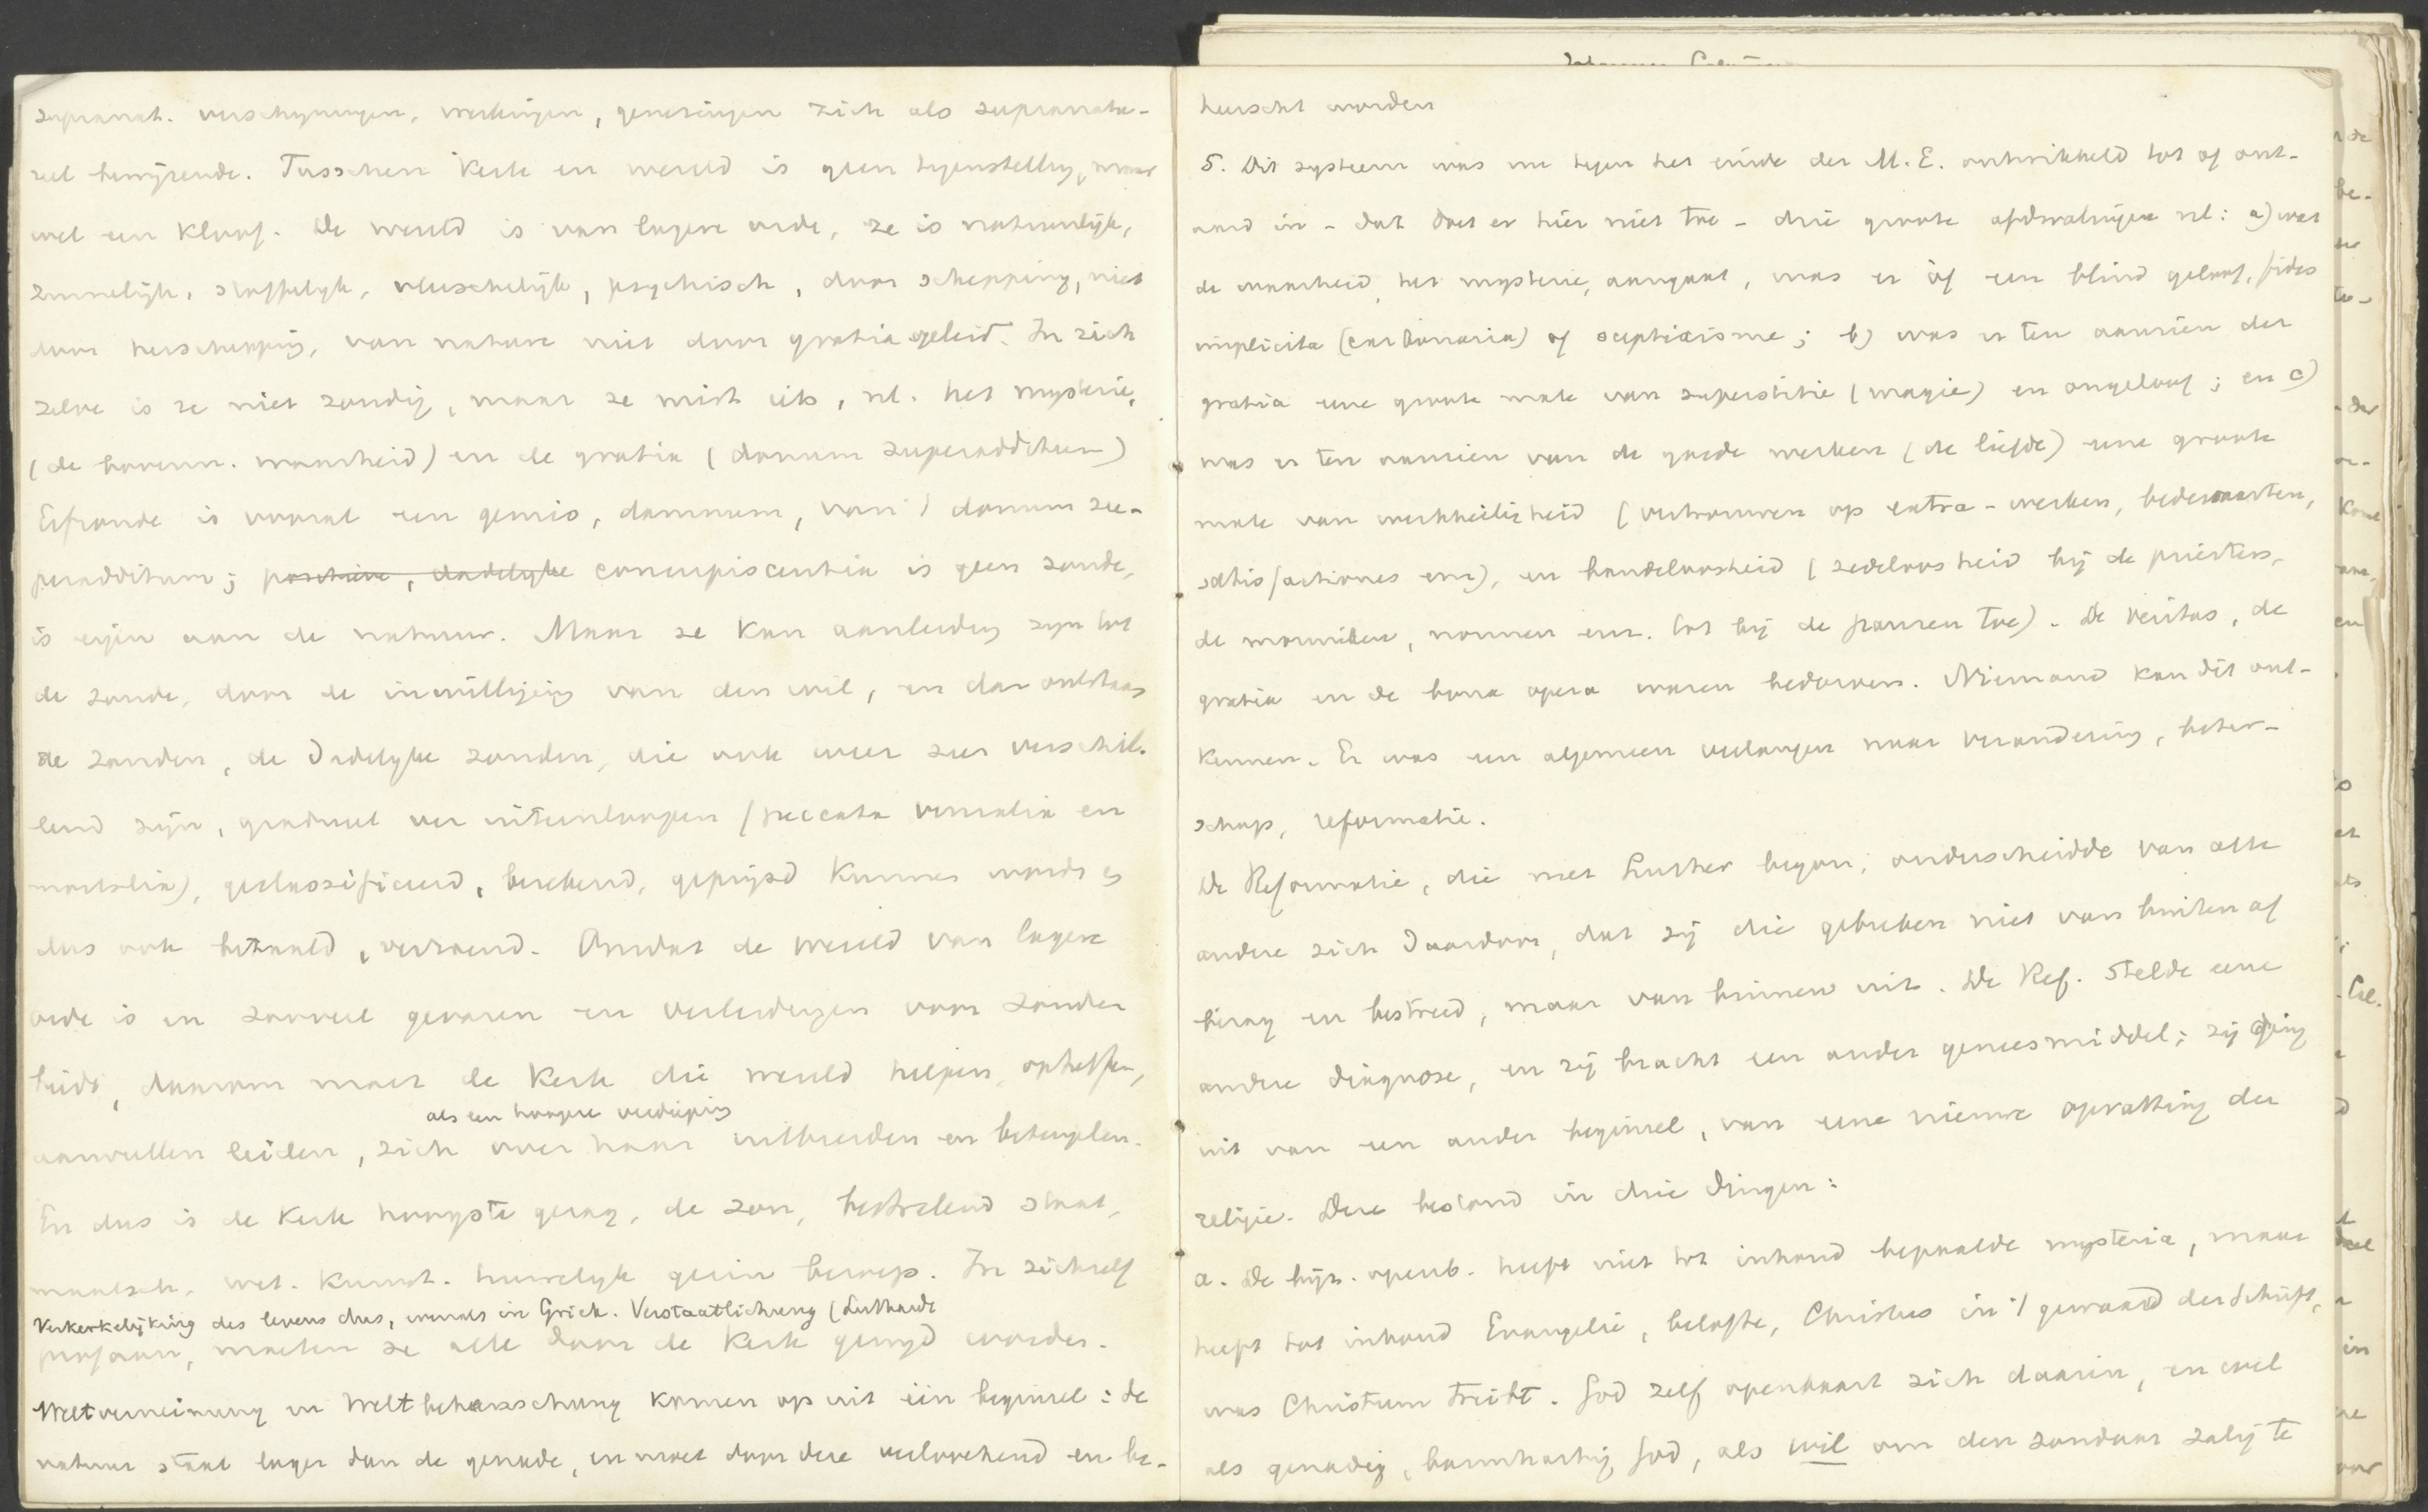 supranat. verschijningen, werkingen, genezingen zich als supranatu-
reel bewijzende. Tusschen Kerk en wereld is geen tegenstelling, maar
wel een kloof. De wereld is van lagere orde, ze is natuurlijk,
zinnelijk, stoffelijk, vleeschelijk, psychisch, door schepping, niet
door herschepping, van nature niet door gratia geleid. In zich
zelve is ze niet zondig, maar ze mist iets, nl. het mysterie,
(de bovenn. waarheid) en de gratia (donum superadditum)
Erfzonde is vooral een gemis, damnum, van 't donum su-
peradditum; positieve, dadelyke concupiscentia is geen zonde,
is eigen aan de natuur. Maar ze kan aanleiding zijn tot
de zonde, door de inwilliging van den wil, en dan ontstaan
de zonden, de dadelyke zonden, die ook weer zeer verschil-
lend zijn, gradueel ver uiteenloopen (peccata venialia en
mortalia), geclassificeerd, berekend, geprijsd kunnen worden en
dus ook betaald, verzoend. Omdat de wereld van lagere
orde is en zooveel gevaren en verleidingen voor zonden
biedt, daarom moet de Kerk die wereld helpen, opheffen,
als een hoogere verdieping
aanvullen leiden, zich over haar uitbreiden en beteugelen.
En dus is de Kerk hoogste gezag, de zon, bestralend staat,
maatsch. wet. Kunst. huwelyk gezin beroep. In zichzelf
Verkerkelijking des levens dus, evenals in Griek. Verstaatlichung (Luthardt
profaan, moeten ze alle door de Kerk gewijd worden.
Weltverneinung en Weltbeherrschung komen op uit één beginsel: de
natuur staat lager dan de genade, en moet door deze verloochend en be-
heerscht worden
5. Dit systeem was nu tegen het einde der M.E. ontwikkeld tot of ont-
aard in - dat doet er hier niet toe - drie groote afdwalingen nl: a) wat
de waarheid, het mysterie, aangaat, was er óf een blind geloof, fides
implicita (carbonaria) of scepticisme; b) was er ten aanzien der
gratia eene groote mate van superstitie (magie) en ongeloof; en c)
was er ten aanzien van de goede werken (de liefde) eene groote
mate van werkheiligheid (vertrouwen op extra-werken, bedevaarten,
satisfactiones enz), en bandeloosheid (zedeloosheid bij de priesters,
de monniken, nonnen enz. tot bij de pausen toe). De veritas, de
gratia en de bona opera waren bedorven. Niemand kan dit ont-
kennen. Er was een algemeen verlangen naar verandering, beter-
schap, reformatie.
De Reformatie, die met Luther begon, onderscheidde van alle
andere zich daardoor, dat zij die gebreken niet van buiten af
bezag en bestreed, maar van binnen uit. De Ref. stelde eene
andere diagnose, en zij bracht een ander geneesmiddel; zij ging
uit van een ander beginsel, van eene nieuwe opvatting der
religie. Deze bestond in drie dingen:
a. De bijz. openb. heeft niet tot inhoud bepaalde mysteria, maar
heeft tot inhoud Evangelie, belofte, Christus in 't gewaad der Schrift,
was Christum treibt. God zelf openbaart zich daarin, en wel
als genadig, barmhartig God, als wil om den zondaar zalig te